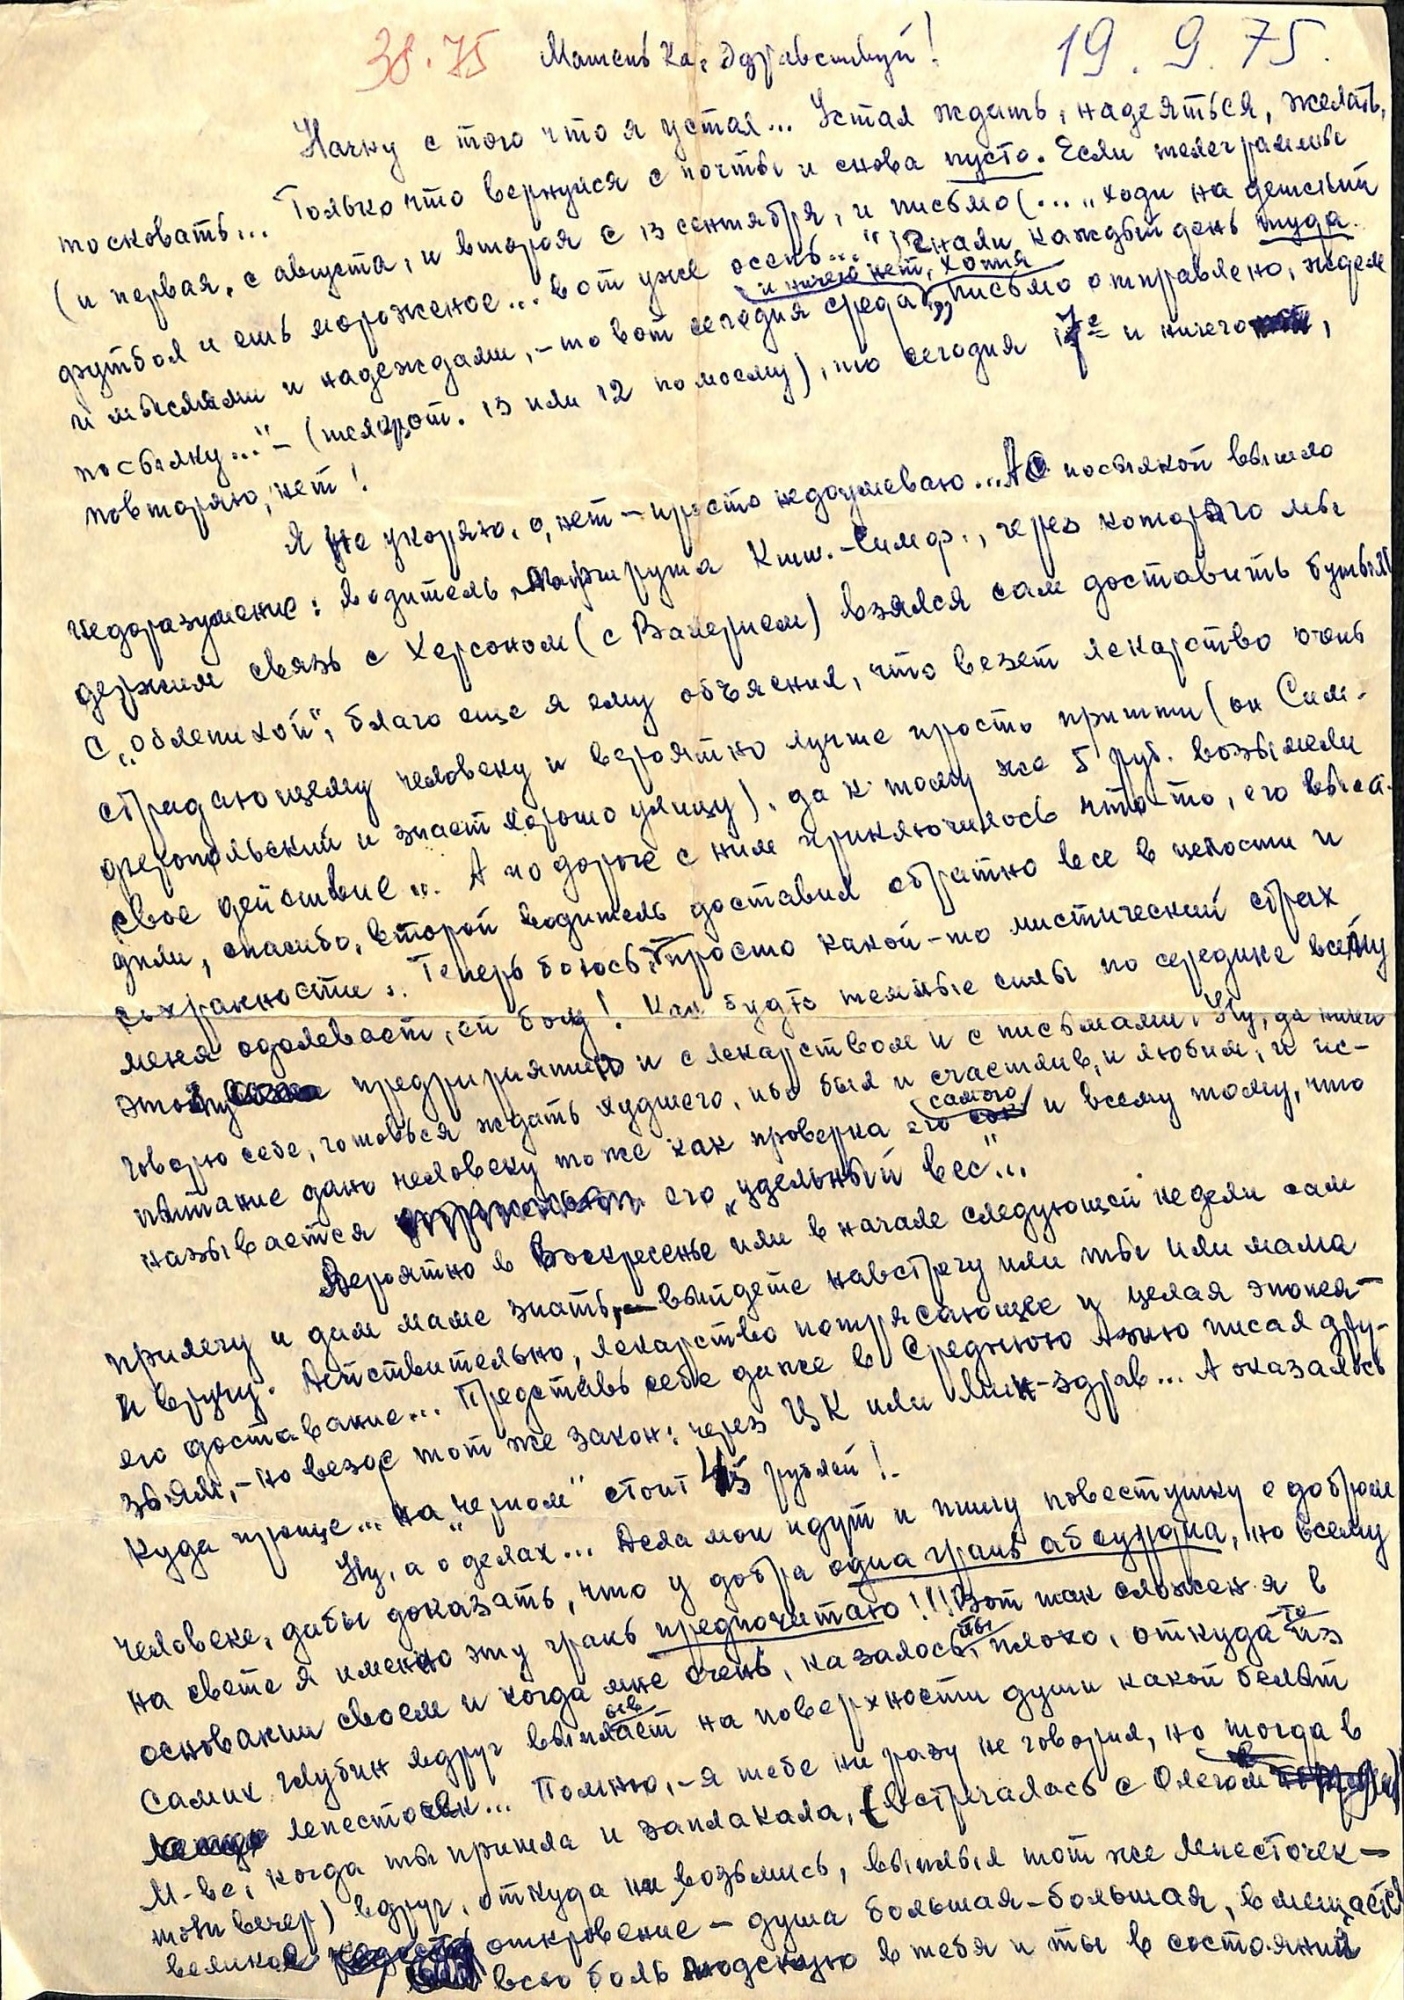 38.75 Матенька, здравствуй! 19.9.75.
Начну с того что я устал... Устал ждать, надеяться, желать,
тосковать... Только что вернулся с почты и снова пусто. Если телеграммы
(и первая, с августа, и вторая с 13 сентября, и письмо (... „ходи на детский
футбол и ешь мороженое... вот уже осень..." ) гнали каждый день туда
и мыслями и надеждами, – то вот сегодня среда и ничего нет, хотя „письмо отправлено, ждем
посылку..." – (телегр. от. 13 или 12 по моему), то сегодня 17е и ничего,
повторяю, нет!
Я не укоряю, о, нет – просто недоумеваю... А с посылкой вышло
недоразумение: водитель маршрута Киш.-Симф., через которого мы
держим связь с Херсоном (с Валерием) взялся сам доставить бутыль
с „облепихой", благо еще я ему объяснил, что везет лекарство очень
страдающему человеку и вероятно лучше просто притти (он Сим-
феропольский и знает хорошо улицу), да к тому же 5 руб. возымели
свое действие... А по дороге с ним приключилось что-то, его выса-
дили, спасибо, второй водитель доставил обратно все в целости и
сохранности. Теперь боюсь, просто какой-то мистический страх
меня одолевает, ей богу! Как будто темные силы по середине всему
этому предприятию и с лекарством и с письмами. Ну, да ничего
говорю себе, готовься ждать худшего, ибо был и счастлив, и любим, и ис-
пытание дано человеку тоже как проверка его самого и всему тому, что
называется его „удельный вес"...
Вероятно в Воскресенье или в начале следующей недели сам
прилечу и дам маме знать, – выйдете навстречу или ты или мама
и вручу. Действительно, лекарство потрясающее и целая эпопея –
его доставание... Представь себе даже в Среднюю Азию писал дру-
зьям, – но везде тот же закон: через ЦК или Мин-здрав... А оказалось
куда проще... на „черном" стоит 45 рублей! –
Ну, а о делах... Дела мои идут и пишу повестушку о добром
человеке, дабы доказать, что у добра одна грань абсурдна, но всему
на свете я именно эту грань предпочитаю!!! Вот так сложен я в
основании своем и когда мне очень, казалось бы, плохо, откуда-то из
самих глубин вдруг выплывает на поверхности души какой белый
лепесток... Помню, – я тебе ни разу не говорил, но тогда в
М-ве, когда ты пришла и заплакала, (встречалась с Олегом в
тот вечер) вдруг, откуда ни возьмись, выплыл тот же лепесточек –
великое откровение – душа большая-большая, вмещается
всю боль людскую в тебя и ты в состоянии